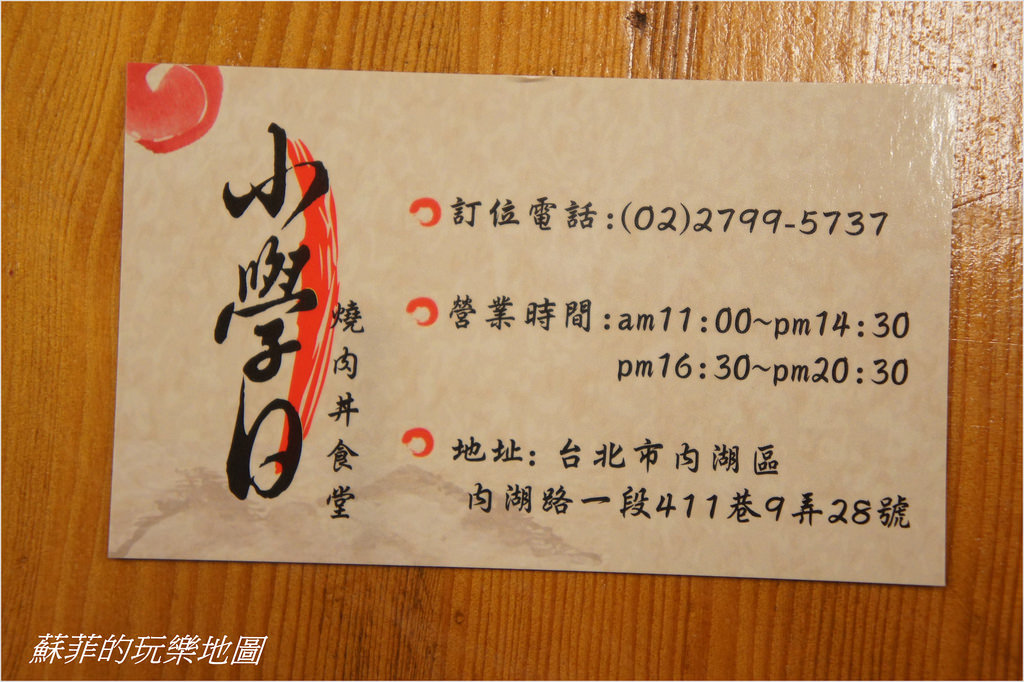 小學日
燒肉丼食堂
訂位電話:(02)2799-5737
營業時間:am11:00~pm14:30
pm16:30~pm20:30
地址: 台北市內湖區
內湖路一段411巷9弄28號
蘇菲的玩樂地圖